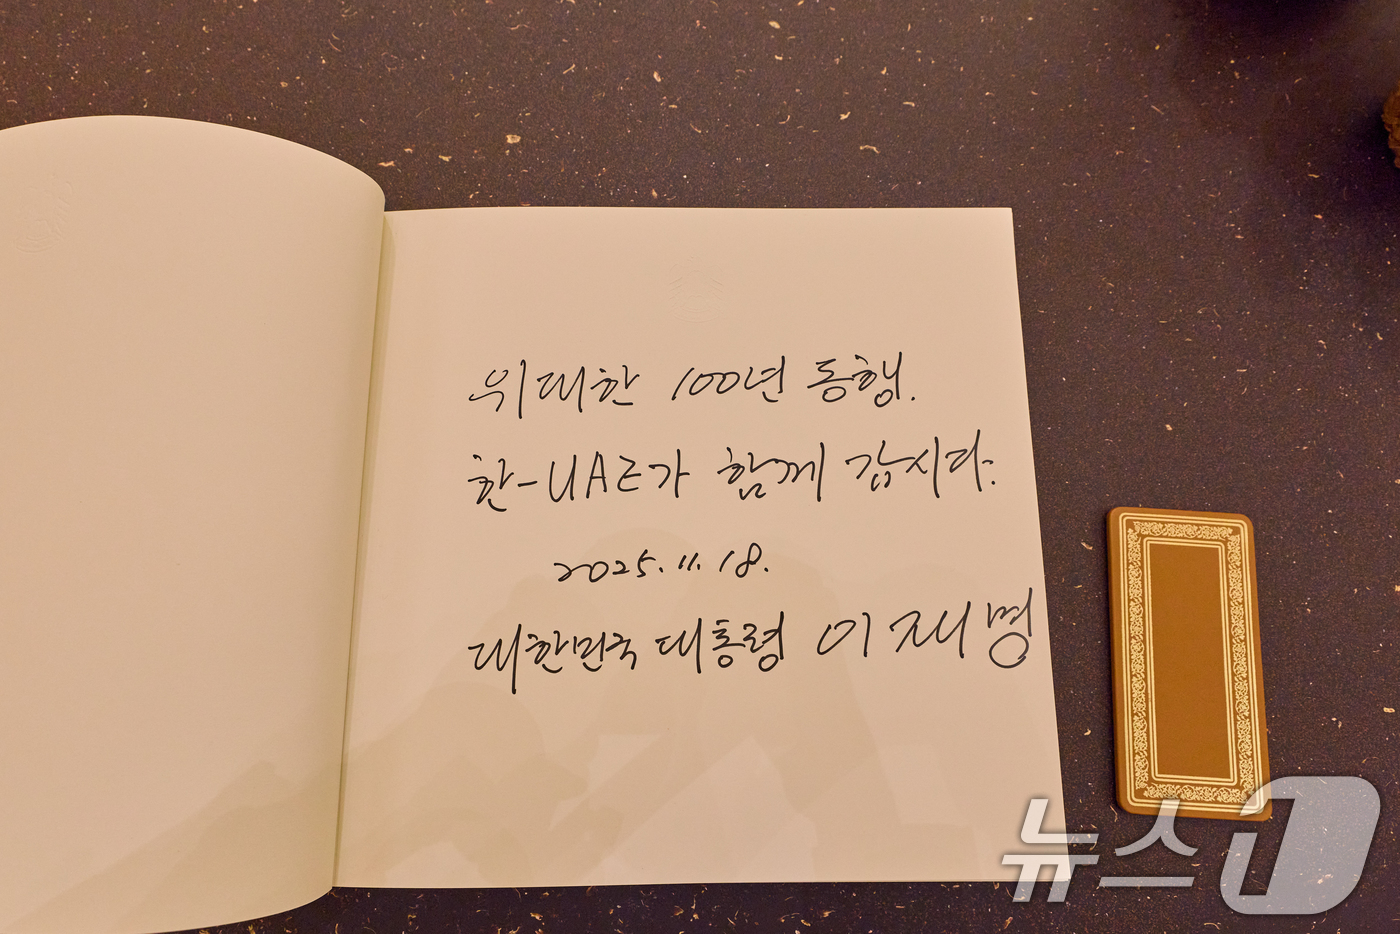 위대한 100년 동행.
한-UAE가 함께 갑시다.
2025. 11. 18.
대한민국 대통령 이재명
뉴스1